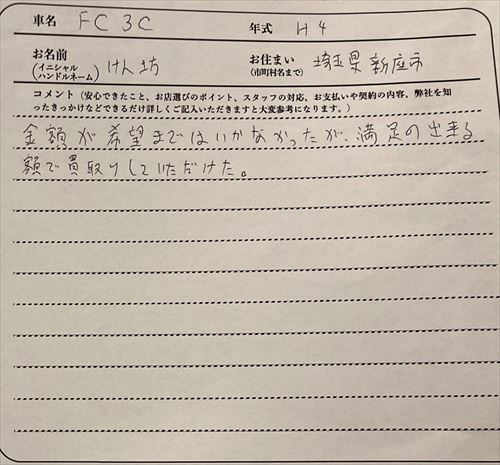 車名 FC3C 年式 H4
お名前 (イニシャル ハンドルネーム) けん坊 お住まい (市町村名まで) 埼玉県新座市
コメント（安心できたこと、お店選びのポイント、スタッフの対応、お支払いや契約の内容、弊社を知
ったきっかけなどできるだけ詳しくご記入いただきますと大変参考になります。）
金額が希望まではいかなかったが、満足の出来る
額で買取りしていただけた。